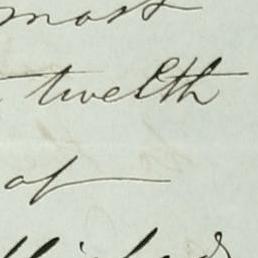 most
twelth
of